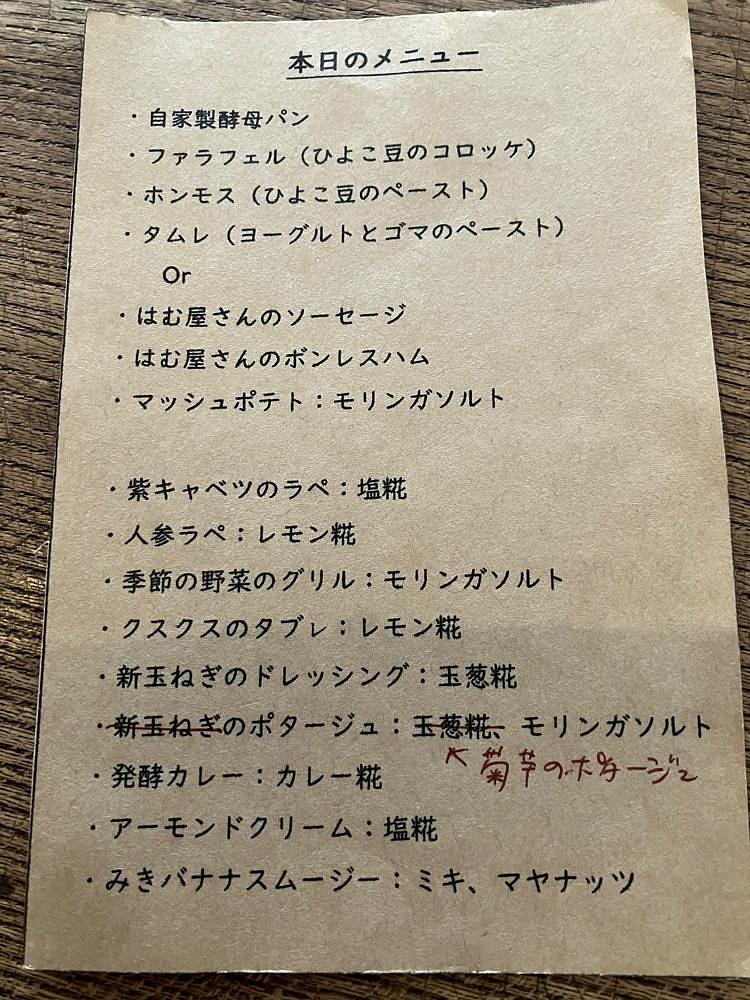 本日のメニュー
・自家製酵母パン
・ファラフェル（ひよこ豆のコロッケ）
・ホンモス（ひよこ豆のペースト）
・タムレ（ヨーグルトとゴマのペースト）
Or
・はむ屋さんのソーセージ
・はむ屋さんのボンレスハム
・マッシュポテト：モリンガソルト
・紫キャベツのラペ：塩糀
・人参ラペ：レモン糀
・季節の野菜のグリル：モリンガソルト
・クスクスのタブレ：レモン糀
・新玉ねぎのドレッシング：玉葱糀
・新玉ねぎのポタージュ：玉葱糀、モリンガソルト
↖菊芋のポタージュ
・発酵カレー：カレー糀
・アーモンドクリーム：塩糀
・みきバナナスムージー：ミキ、マヤナッツ